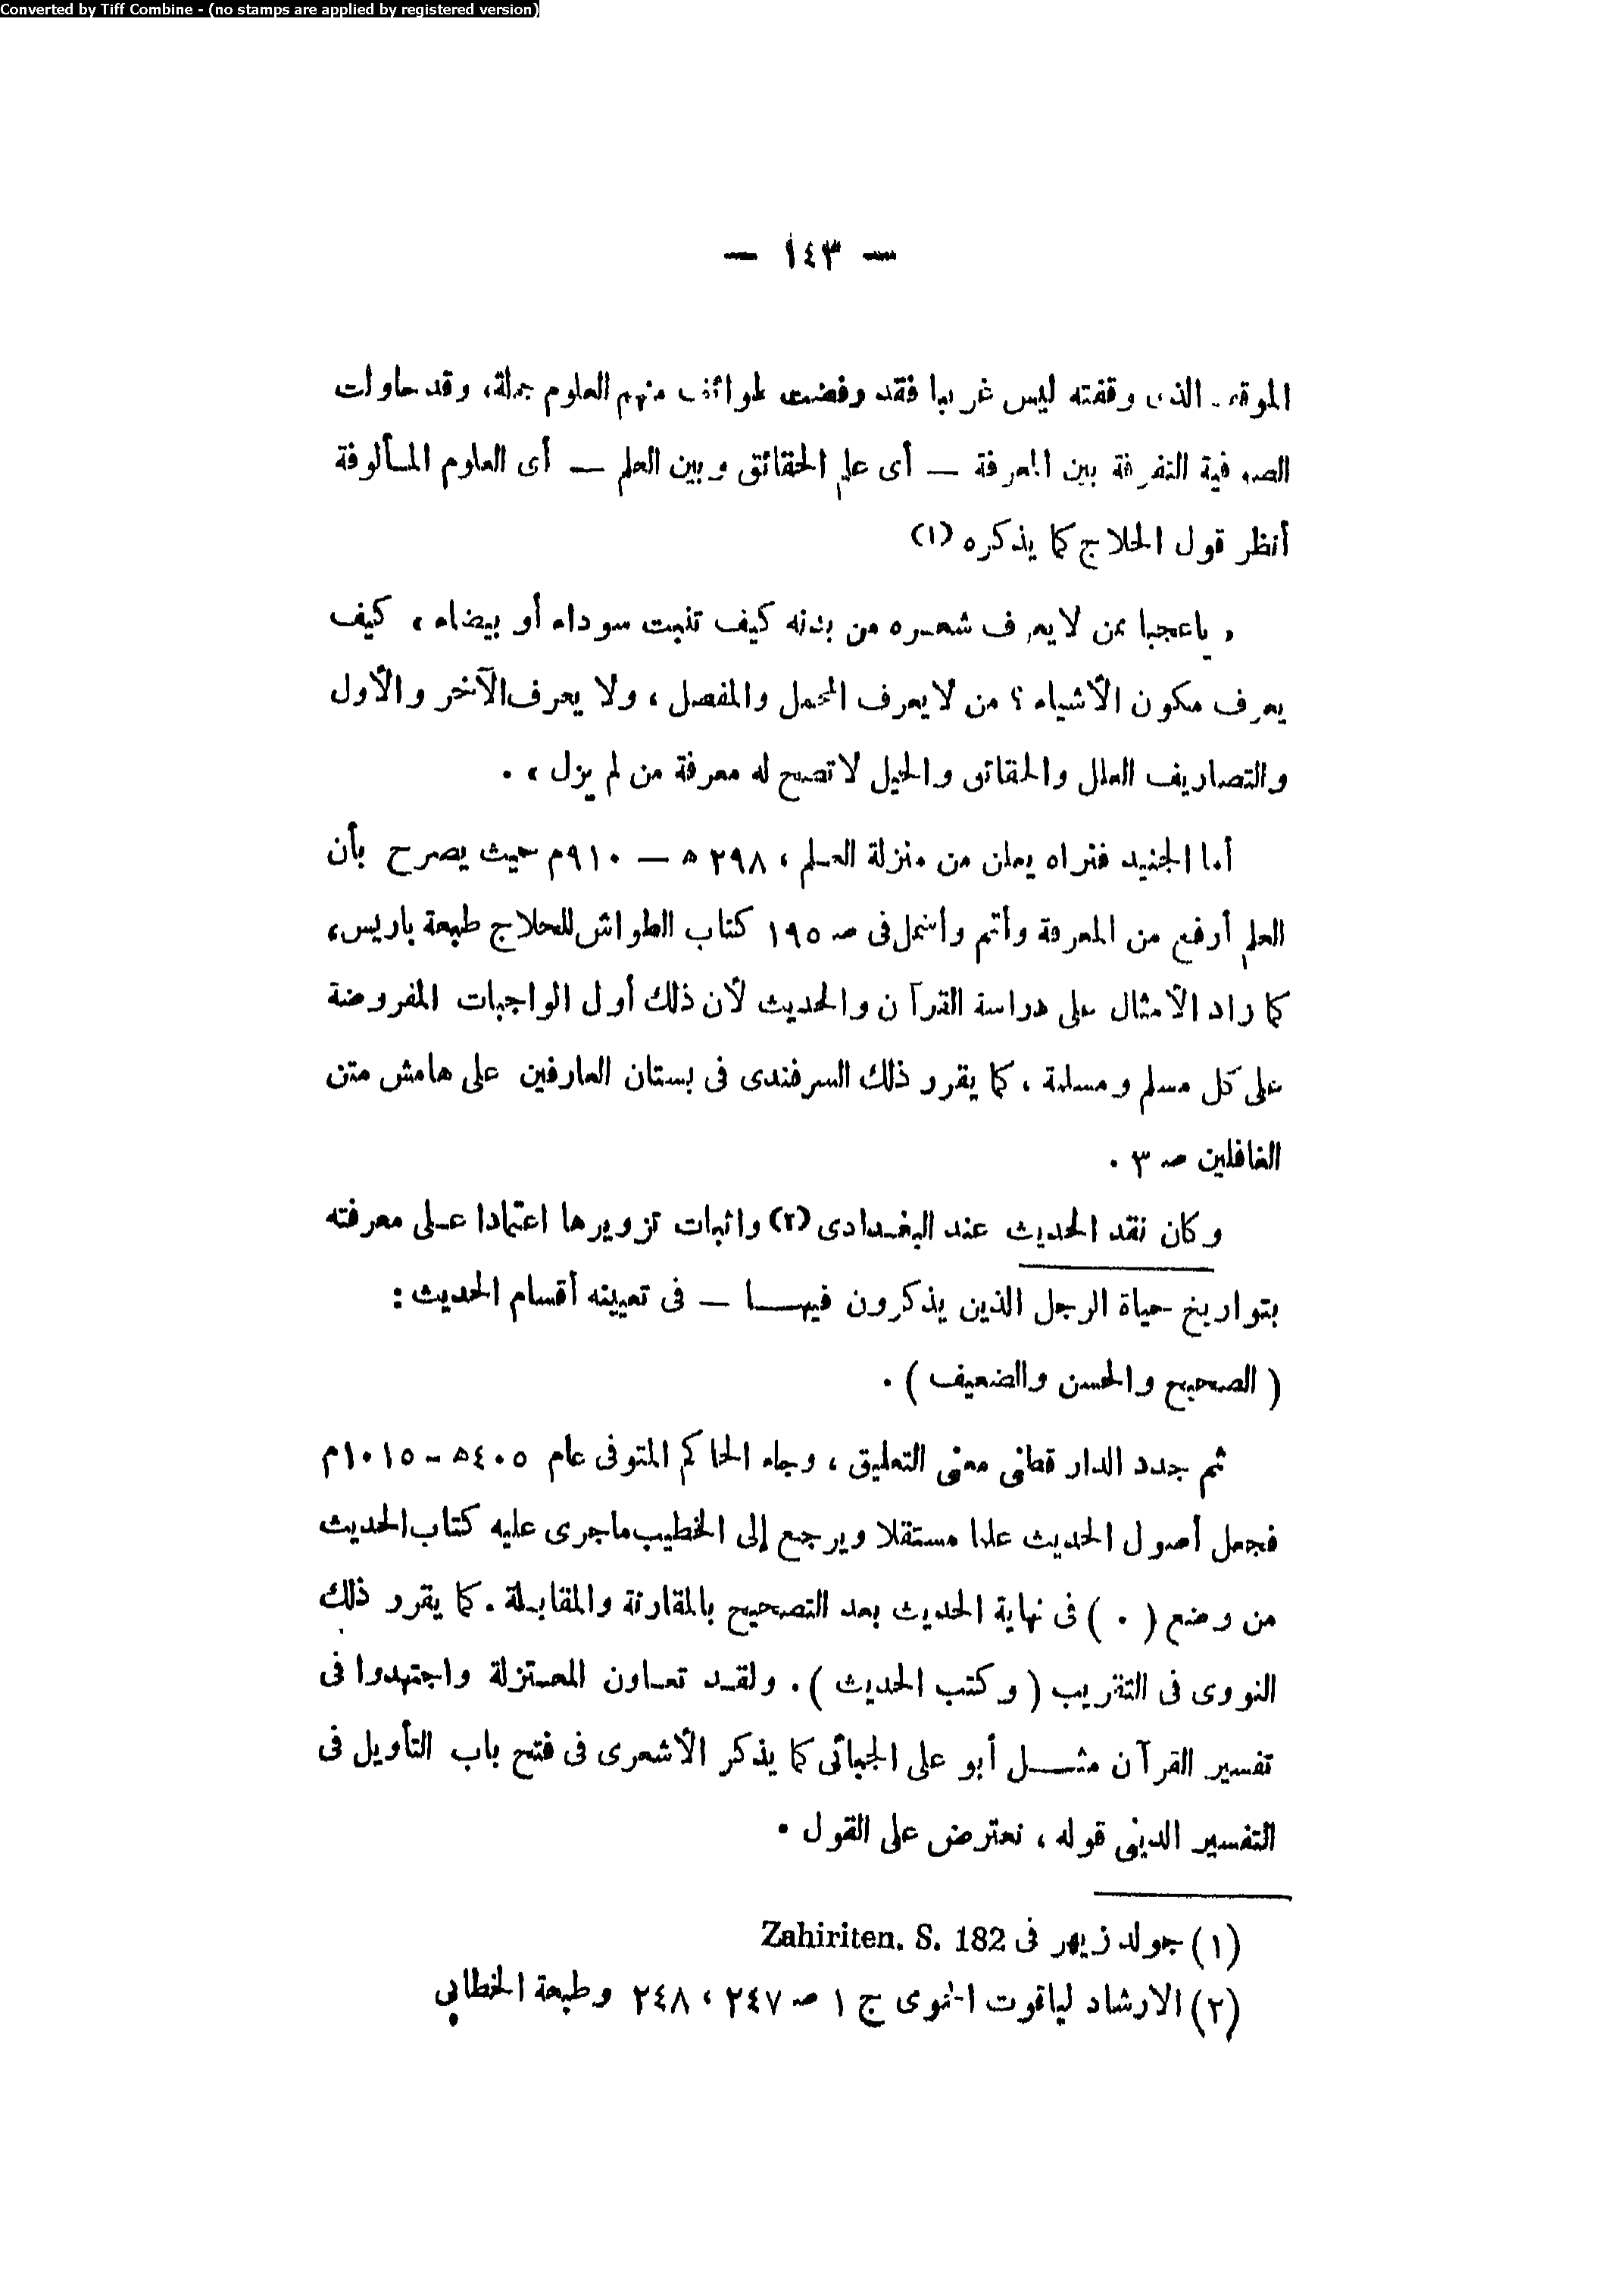 Converted by Tiff Combine - (no stamps are applied by registered version)
— ١٤٣ —
الموقف الذى وقفته ليس غريبا فقد رفضت طوائف منهم العلوم جملة، وقد حاولت
الصوفية التفرقة بين المعرفة — أى علم الحقائق وبين العلم — أى العلوم المألوفة
أنظر قول الحلاج كما يذكره (١)
« ياعجبا ممن لايعرف شعره من بدنه كيف تنبت سوداء أو بيضاء ، كيف
يعرف مكون الأشياء ؟ من لايعرف المجمل والمفصل ، ولا يعرف الآخر والأول
والتصاريف العلل والحقائق والحيل لاتصح له معرفة من لم يزل » .
أما الجنيد فنراه يعلن من منزلة العلم ، ٢٩٨ ه — ٩١٠م حيث يصرح بأن
العلم أرفع من المعرفة وأتم وأشمل فى صـ ١٩٥ كتاب الطواش للحلاج طبعة باريس،
كما زاد الأمثال على دراسة القرآن والحديث لأن ذلك أول الواجبات المفروضة
على كل مسلم ومسلمة ، كما يقرر ذلك السرفندى فى بستان العارفين على هامش متن
الغافلين صـ ٣ .
وكان نقد الحديث عند البغدادى (٢) واثبات تزويرها اعتمادا على معرفته
بتواريخ حياة الرجل الذين يذكرون فيها — فى تعيينه أقسام الحديث :
( الصحيح والحسن والضعيف ) .
ثم جدد الدار قطنى معنى التعليق ، وجاء الحاكم المتوفى عام ٤٠٥ه - ١٠١٥م
فجعل أصول الحديث علما مستقلا ويرجع إلى الخطيب ماجرى عليه كتاب الحديث
من وضع ( . ) فى نهاية الحديث بعد التصحيح بالمقارنة والمقابلة . كما يقرر ذلك
النووى فى التقريب ( وكتب الحديث ) . ولقد تعاون المعتزلة واجتهدوا فى
تفسير القرآن مثل أبو على الجبائى كما يذكر الأشعرى فى فتح باب التأويل فى
التفسير الدينى قوله ، نعترض على القول .
(١) جولد زيهر فى Zahiriten. S. 182
(٢) الارشاد لياقوت الحموى ج ١ صـ ٢٤٧ ، ٢٤٨ وطبعة الخطابى .